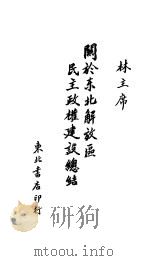 林主席
關於东北解放區
民主政權建設總結
東北書店印行
mtoou.info